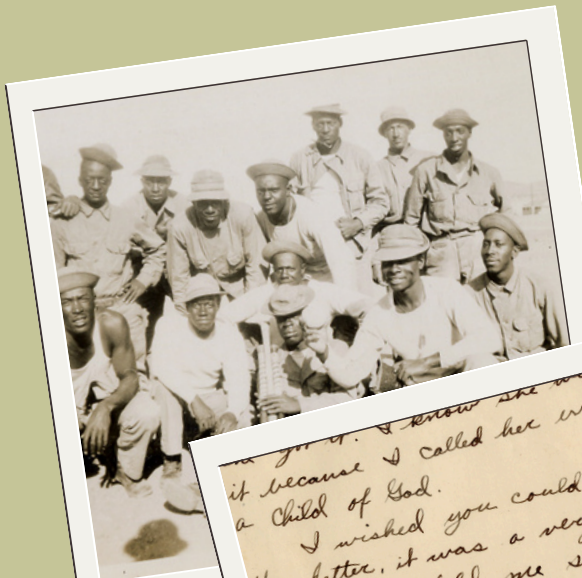 it. I know she
it because I called her
a child of God.
I wished you could
letter, it was a very
me